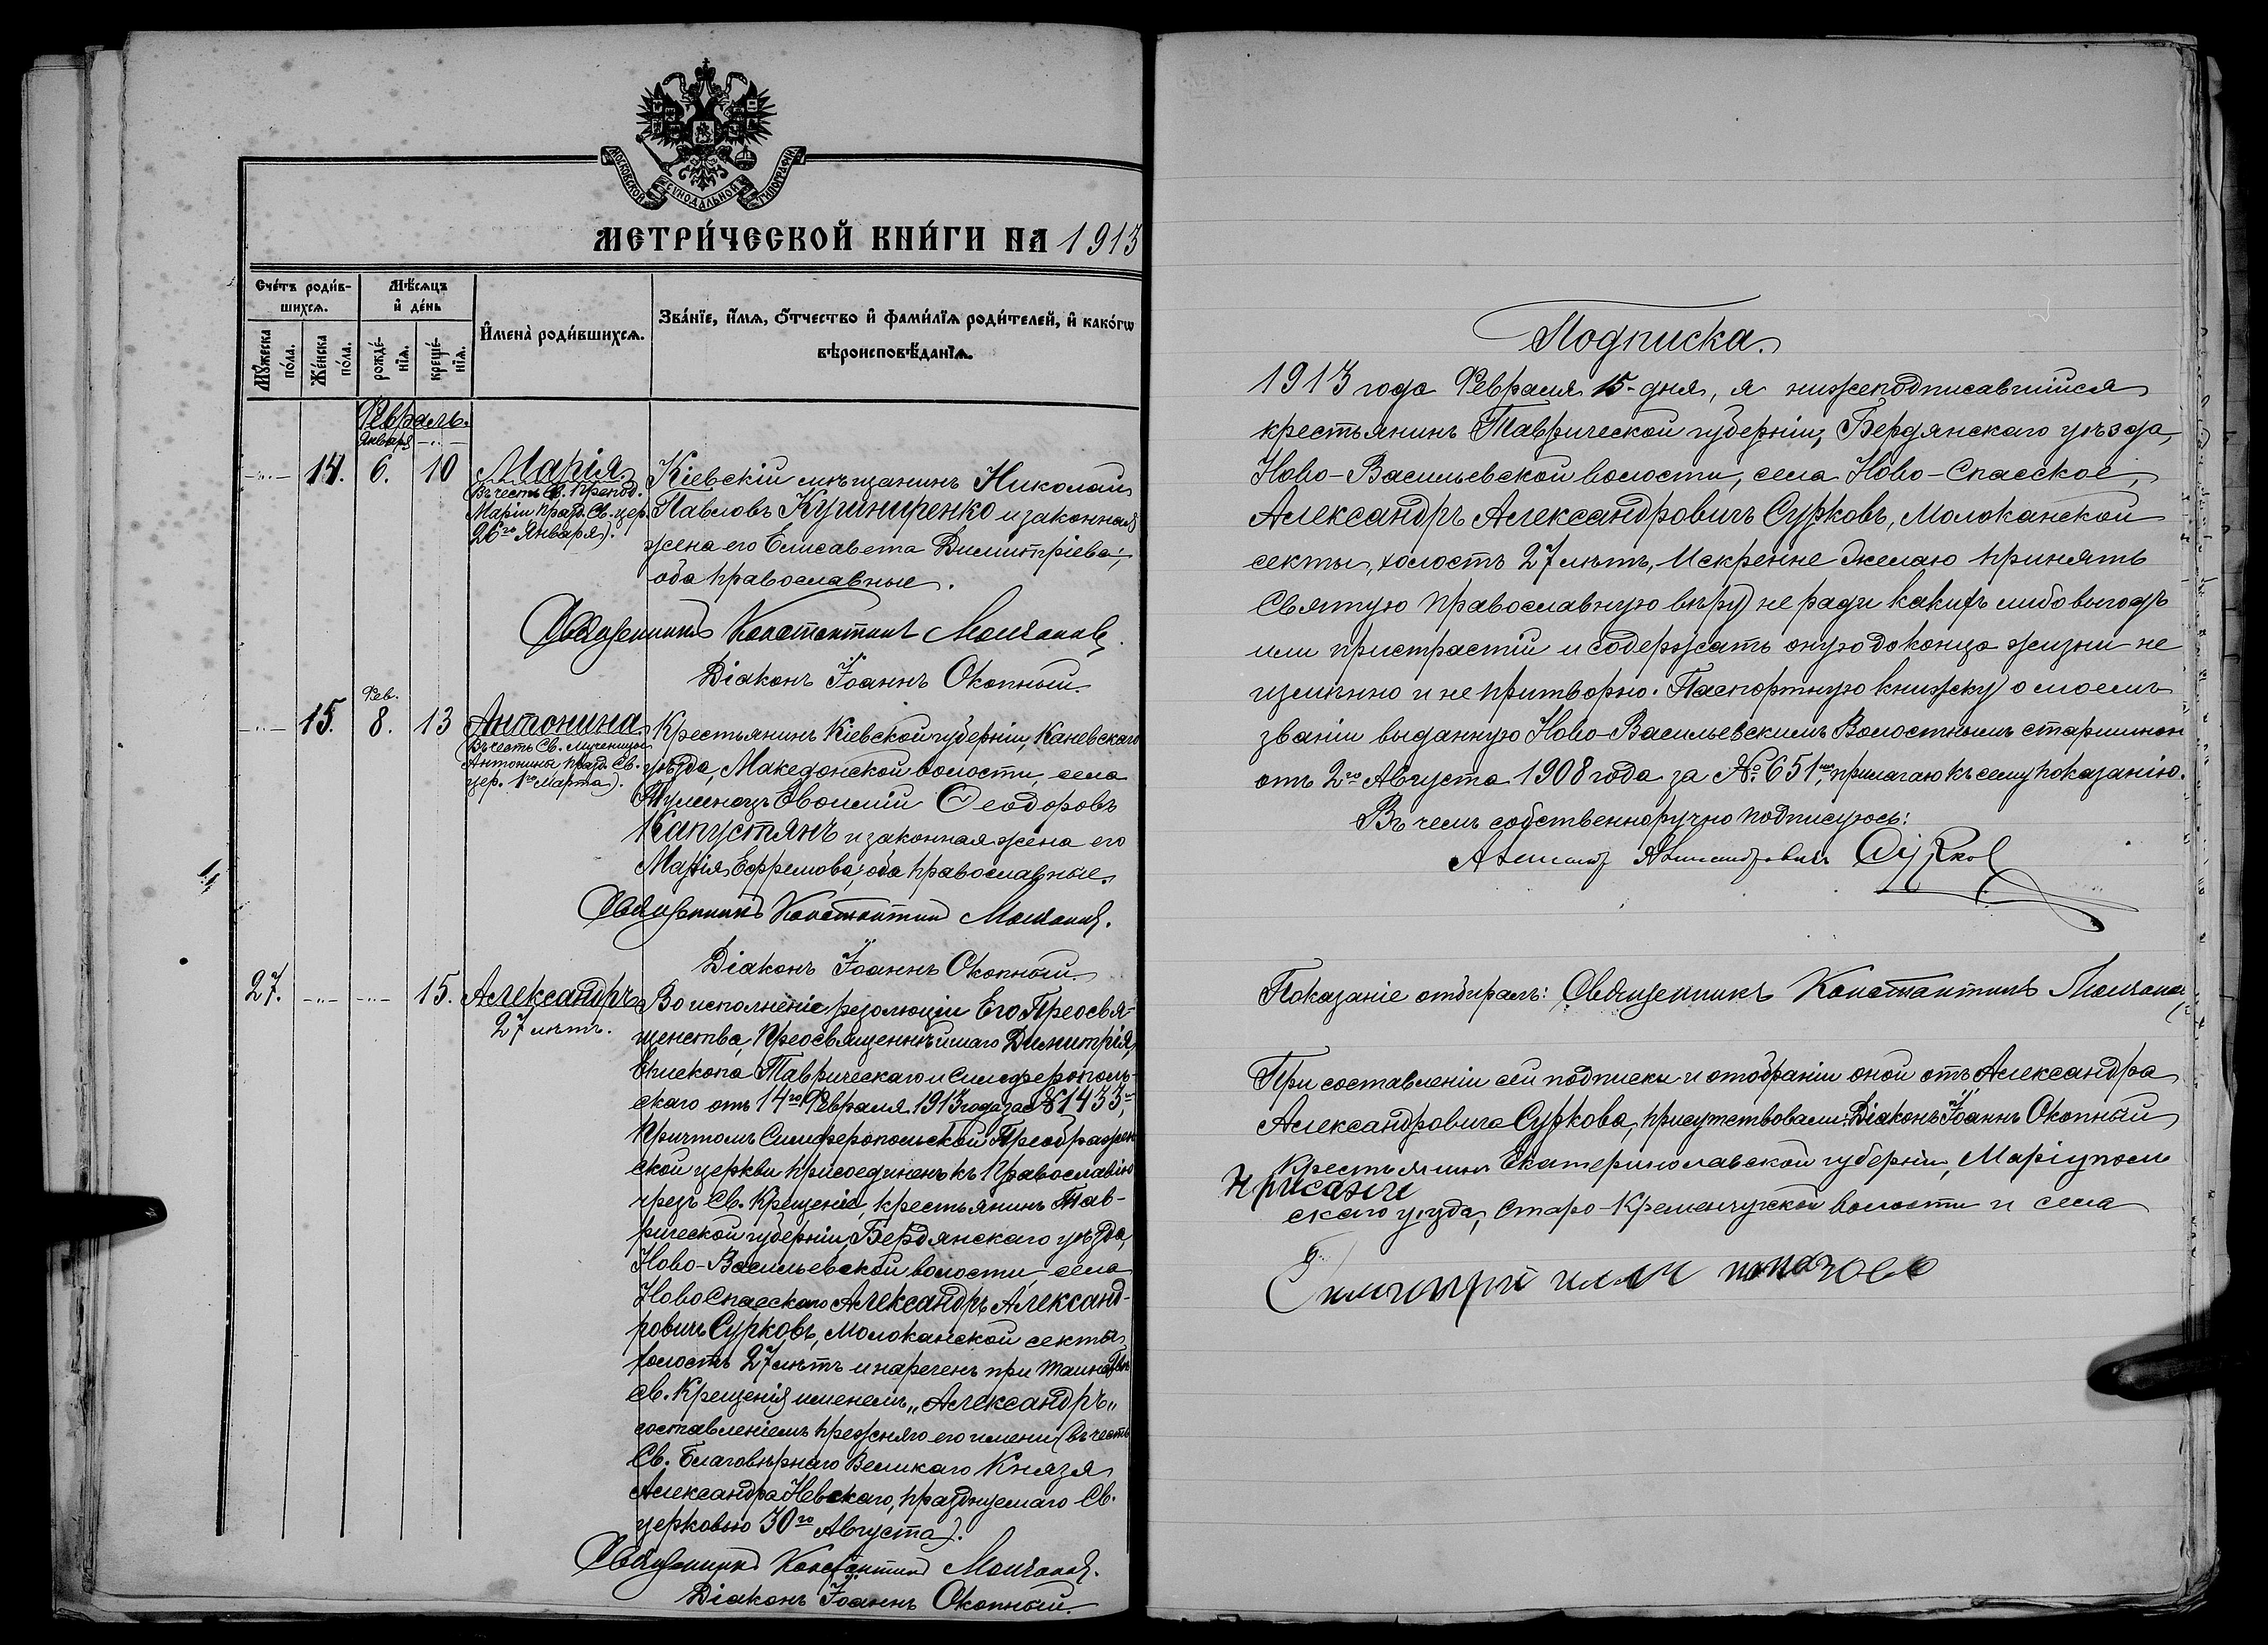 МОСКОВСКОЙ СѴНОДАЛЬНОЙ ТИПОГРАФІИ
МЕТРИ́ЧЕСКОЙ КНИ́ГИ НА 1913
Сче́тъ роди́в-
шихсѧ.
Мѣ́сѧцъ
и҆ де́нь
И҆мена̀ роди́вшихсѧ.
Зва́нїе, и҆́мѧ, ѻ҆́тчество и҆ фами́лїѧ роди́телей, и҆ како́гѡ
вѣроисповѣ́данїѧ.
Мꙋ́жеска
по́ла.
Же́нска
по́ла.
рожде́-
нїѧ.
креще́-
нїѧ.
Февраль.
Января -..-
-..- 14. 6. 10 Марія
(Въ честь Св. Препод.
Маріи празд. Св. цер.
26го Января).
Кіевскій мѣщанинъ Николай
Павловъ Кушниренко и законная
жена его Елисавета Димитріева;
оба православные.
Священникъ Константинъ Молчановъ
Діаконъ Іоаннъ Окопный.
Фев.
-..- 15. 8. 13 Антонина
(Въ честь Св. Мученицы
Антонины празд. Св.
цер. 1го Марта).
Крестьянинъ Кіевской губерніи, Каневскаго
уѣзда, Македонской волости, села
Евѳимій Ѳеодоровъ
Капустянъ и законная жена его
Марія Ефремова; оба православные.
Священникъ Константинъ Молчановъ.
Діаконъ Іоаннъ Окопный.
27. -..- -..- 15. Александръ
27 лѣтъ.
Во исполненіе резолюціи Его Преосвя-
щенства, Преосвященнѣйшаго Димитрія,
Епископа Таврическаго и Симферополь-
скаго отъ 14го Февраля 1913 года за № 1433,
Причтомъ Симферопольской Преображен
ской церкви присоединенъ къ Православію
чрезъ Св. Крещеніе, крестьянинъ Тав-
рической губерніи, Бердянскаго уѣзда,
Ново-Васильевской волости, села
Ново Спасскаго Александръ Александ-
ровичъ Сурковъ, Молоканской секты
холостъ 27 лѣтъ и нареченъ при таинствѣ
св. Крещенія именемъ „Александръ„
съ оставленіемъ прежняго его имени (въ честь
Св. Благовѣрнаго Великаго Князя
Александра Невскаго, празднуемаго Св.
церковью 30го Августа).
Священникъ Константинъ Молчановъ.
Діаконъ Іоаннъ Окопный.
Подписка.
1913 года Февраля 15-дня, я нижеподписавшійся
крестьянинъ Таврической губерніи, Бердянскаго уѣзда,
Ново-Васильевской волости, села Ново-Спасское,
Александръ Александровичъ Сурковъ, Молоканской
секты, холостъ 27 лѣтъ, Искренне желаю принять
Святую православную вѣру не ради какихъ либо выгодъ
или пристрастій и содержать оную до конца жизни не
измѣнно и не притворно. Паспортную книжку о моемъ
званіи выданную Ново-Васильевскимъ Волостнымъ старшиной
отъ 2го Августа 1908 года за № 651, прилагаю къ сему показанію.
Въ чемъ собственноручно подписуюсь:
Александръ Александровичъ Сурков
Показаніе отбиралъ: Священникъ Константинъ Молчановъ
При составленіи сей подписки и отобраніи оной отъ Александра
Александровича Суркова, присутствовали: Діаконъ Іоаннъ Окопный
Крестьянинъ Екатеринославской губерніи, Маріуполь
скаго уѣзда, Старо-Кременчугской волости и села